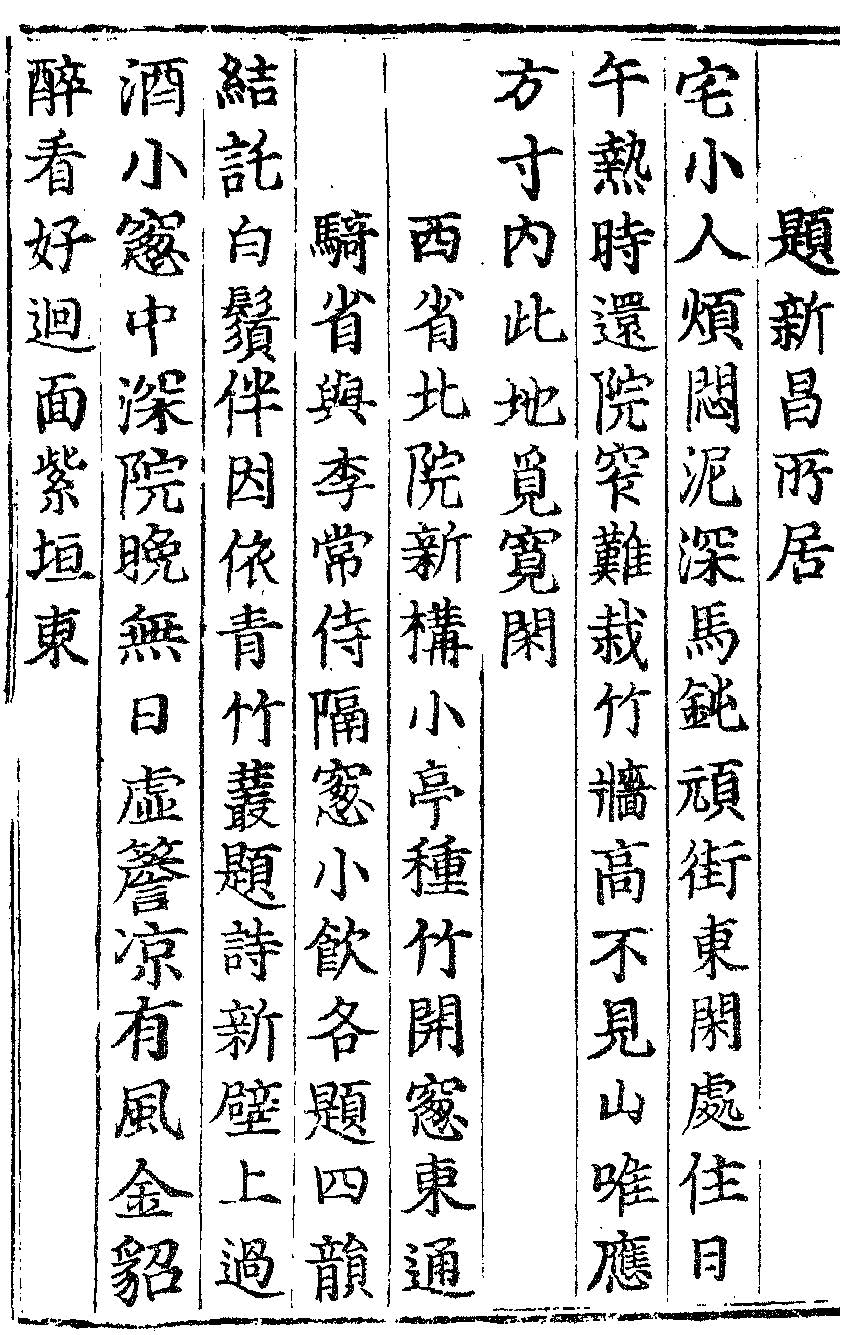 題新昌所居
宅小人煩悶泥深馬鈍頑街東閑處住日
午熱時還院窄難栽竹牆高不見山唯應
方寸内此地覓寬閑
西省北院新構小亭種竹開窻東通
騎省與李常侍隔窻小飲各題四韻
結託白鬚伴因依青竹叢題詩新壁上過
酒小窻中深院晚無日虛簷凉有風金貂
醉看好迴面紫垣東